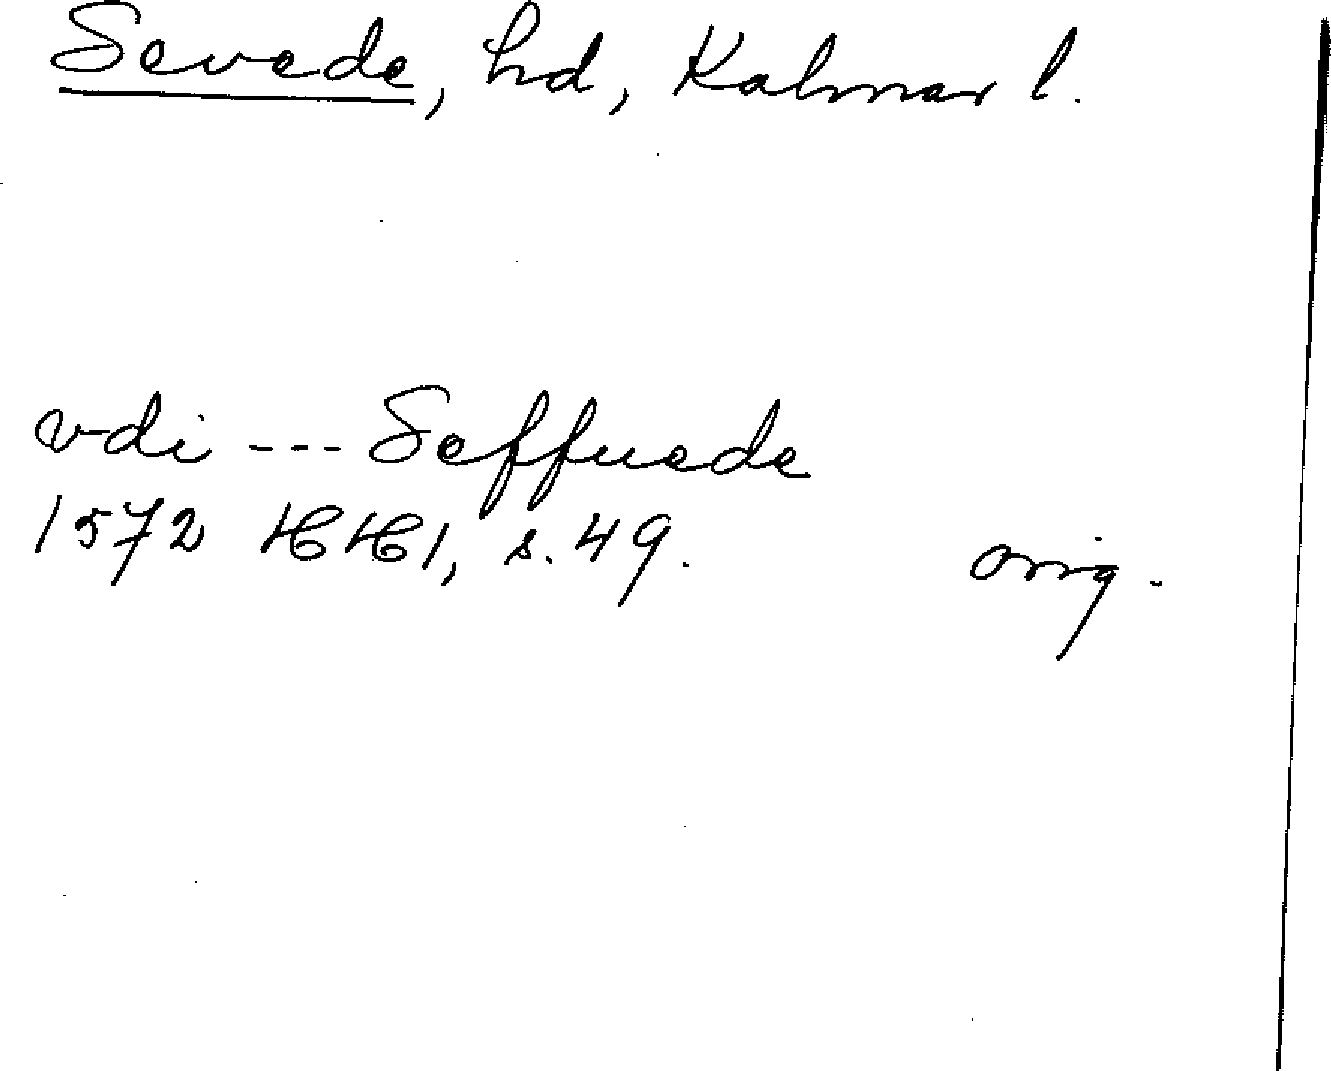 Sevede, hd, Kalmar l.
vdi --- Seffuede
1572 HH 1, s. 49. orig.